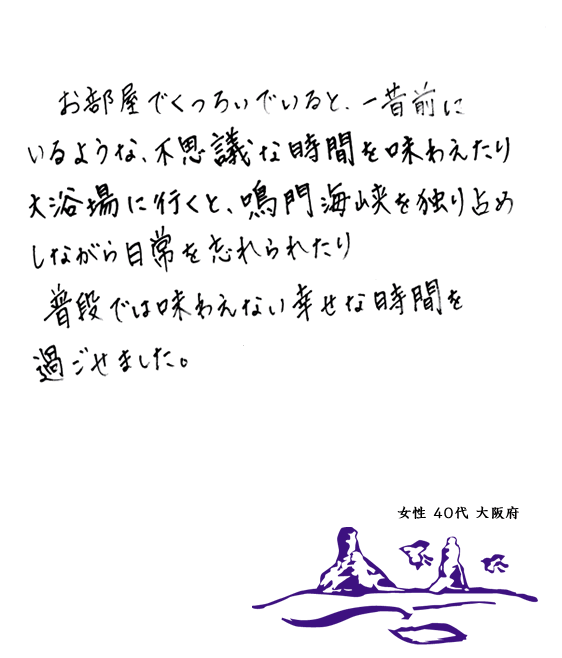 お部屋でくつろいでいると、一昔前に
いるような、不思議な時間を味わえたり
大浴場に行くと、鳴門海峡を独り占め
しながら日常を忘れられたり
普段では味わえない幸せな時間を
過ごせました。
女性 40代 大阪府